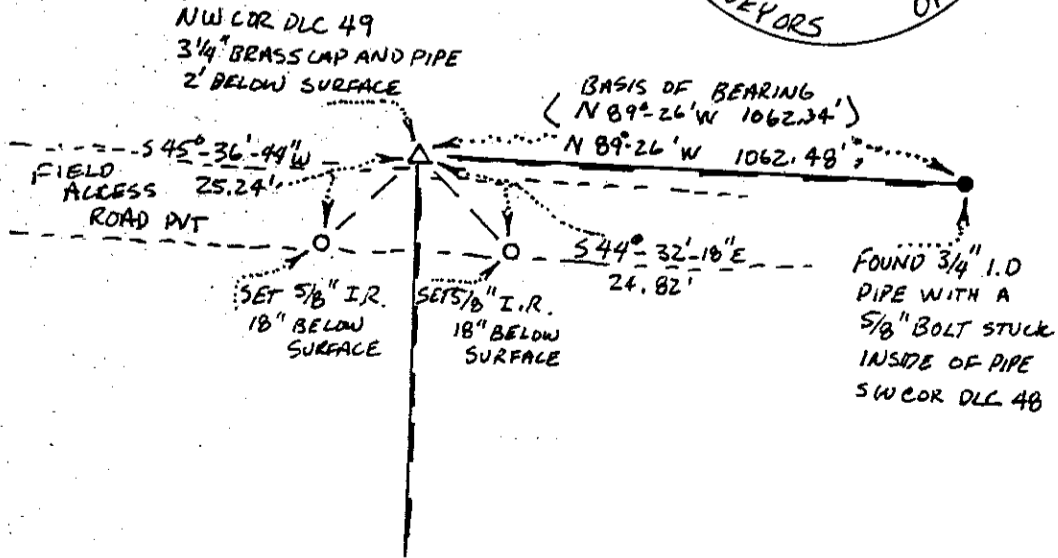 VEYORS
NW COR DLC 49
3 1/4" BRASS CAP AND PIPE
2' BELOW SURFACE
BASIS OF BEARING
( N 89°-26' W 1062.34' )
N 89°-26' W 1062.48'
S 45°-36'-44" W
25.24'
FIELD
ACCESS
ROAD PVT
S 44°-32'-18" E
24.82'
SET 5/8" I.R.
18" BELOW
SURFACE
SET 5/8" I.R.
18" BELOW
SURFACE
FOUND 3/4" I.D
PIPE WITH A
5/8" BOLT STUCK
INSIDE OF PIPE
SW COR DLC 48